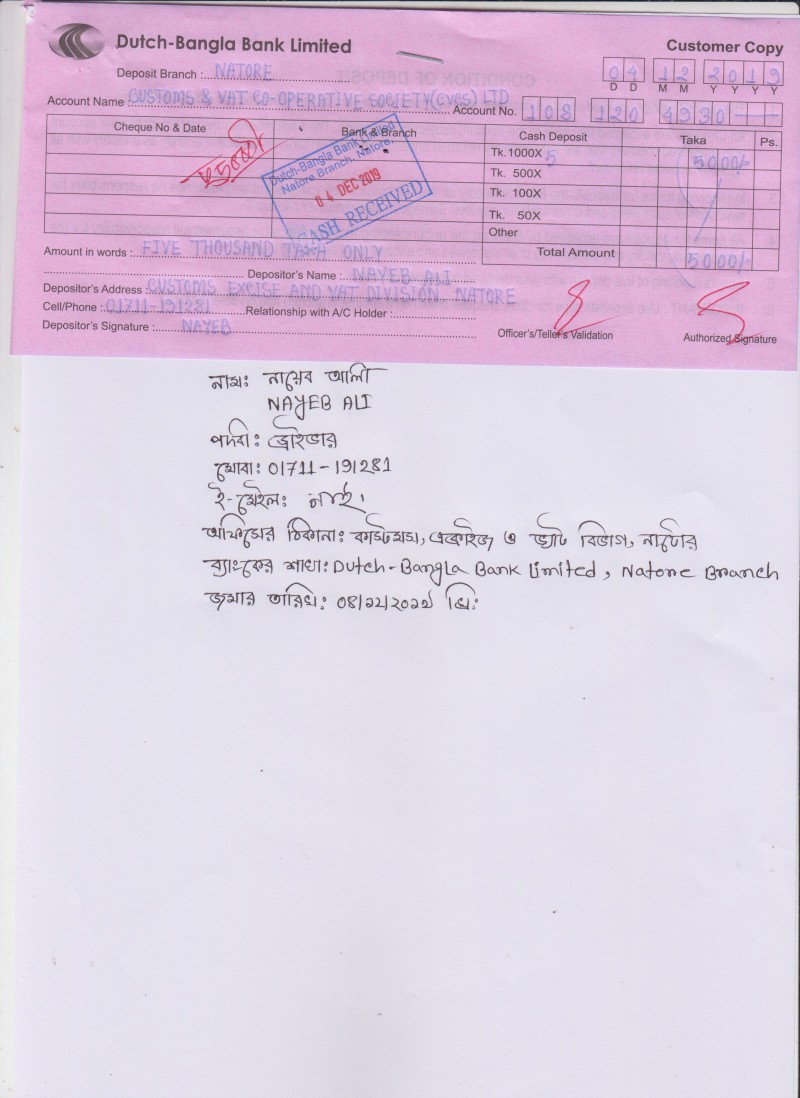 Dutch-Bangla Bank Limited
Customer Copy
Deposit Branch : NATORE
04 12 2019
D D M M Y Y Y Y
Account Name : CUSTOMS & VAT CO-OPERATIVE SOCIETY(CVCS) LTD
Account No. 108 120 4930
Cheque No & Date Bank & Branch Cash Deposit Taka Ps.
Tk. 1000X 5 5000/-
Tk. 500X
Tk. 100X
Tk. 50X
Other
Total Amount 5000/-
Dutch-Bangla Bank Limited
Natore Branch, Natore.
04 DEC 2019
CASH RECEIVED
Amount in words : FIVE THOUSAND TAKA ONLY
Depositor's Name : NAYEB ALI
Depositor's Address CUSTOMS EXCISE AND VAT DIVISION. NATORE
Cell/Phone : 01711-191281 Relationship with A/C Holder :
Depositor's Signature : NAYEB
Officer's/Teller's Validation
Authorized Signature
নামঃ নায়েব আলী
NAYEB ALI
পদবীঃ ড্রাইভার
মোবাঃ 01711-191281
ই-মেইলঃ নাই।
অফিসের ঠিকানাঃ কাস্টমস, এক্সাইজ ও ভ্যাট বিভাগ, নাটোর
ব্যাংকের শাখাঃ Dutch-Bangla Bank Limited, Natore Branch
জমার তারিখঃ ০৪/১২/২০১৯ খ্রিঃ